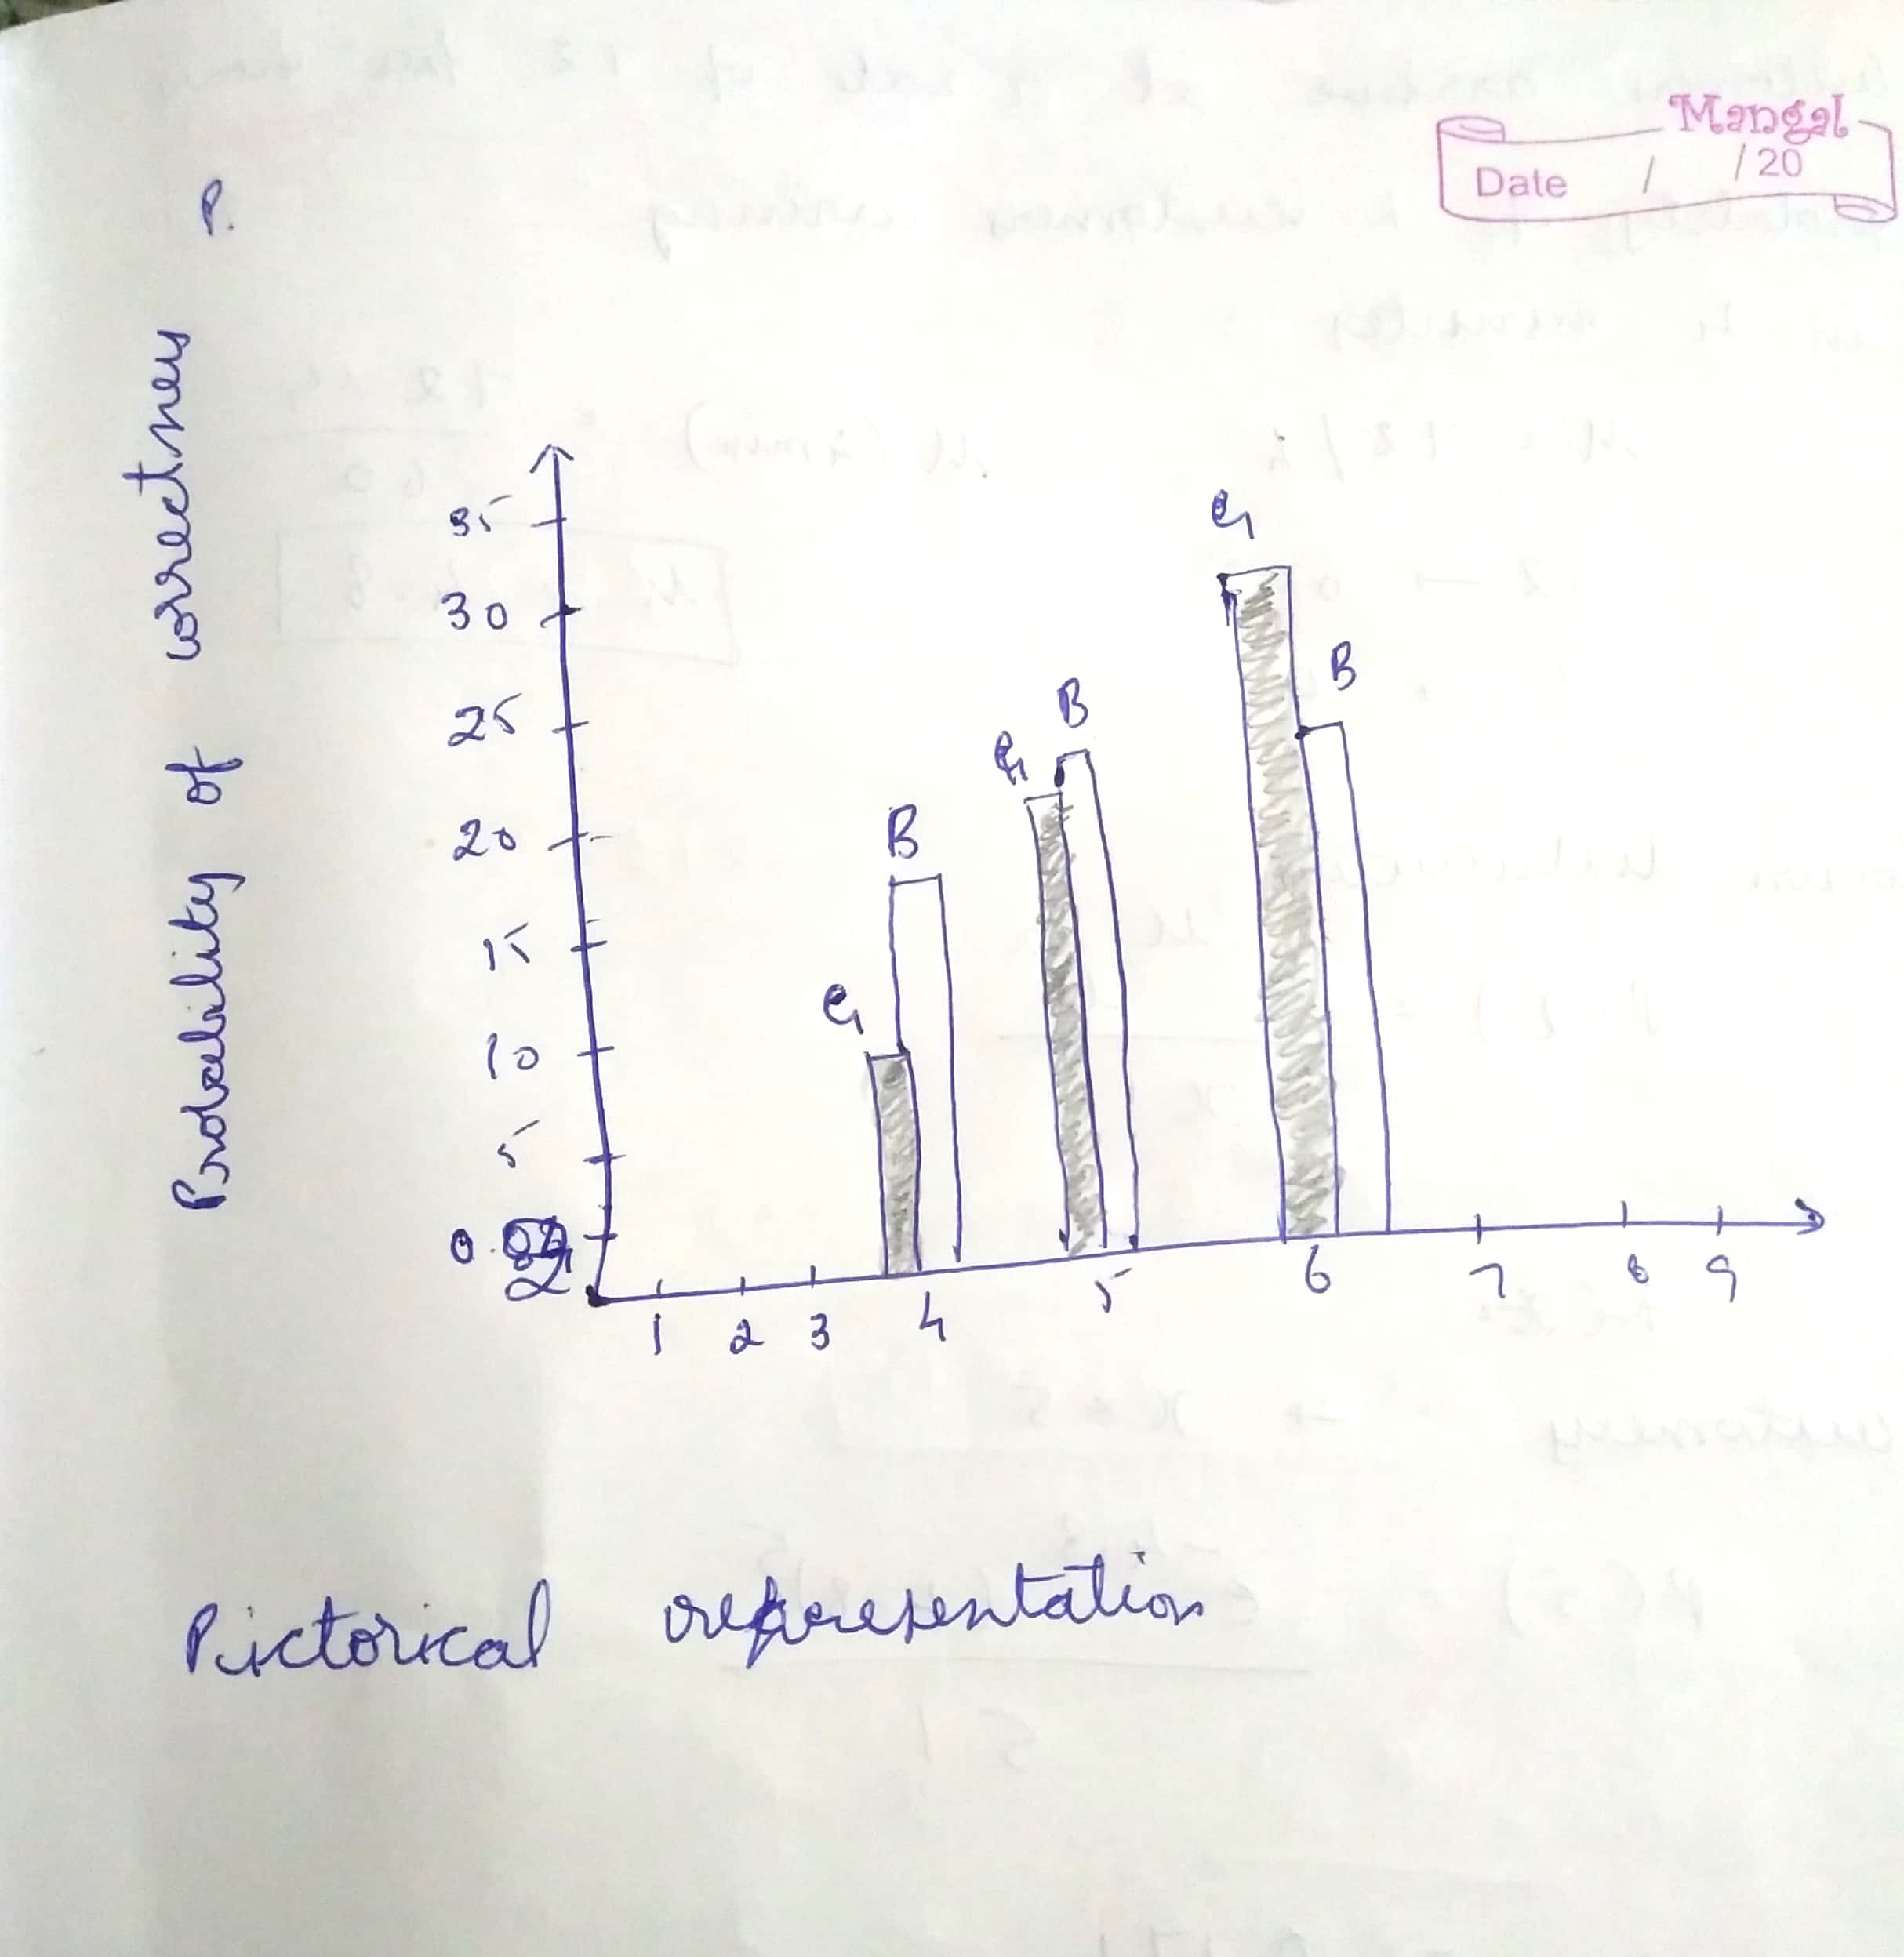 Mangal
Date / /20
P.
Probability of correctness
35
30
25
20
15
10
5
G B
G B
G B
1 2 3 4 5 6 7 8 9
Pictorical representation